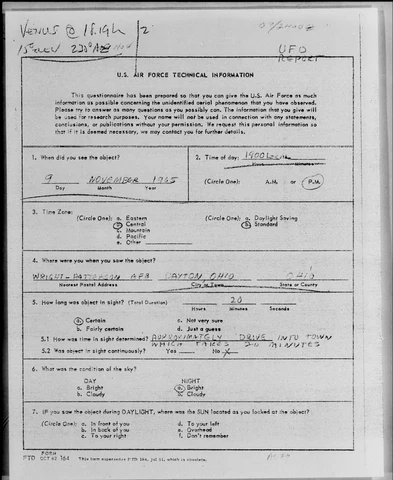 VENUS @ 18.19h /2
15° ELEV 220° AZ
UFO
REPORT
U.S. AIR FORCE TECHNICAL INFORMATION
This questionnaire has been prepared so that you can give the U.S. Air Force as much
information as possible concerning the unidentified aerial phenomenon that you have observed.
Please try to answer as many questions as you possibly can. The information that you give will
be used for research purposes. Your name will not be used in connection with any statements,
conclusions, or publications without your permission. We request this personal information so
that if it is deemed necessary, we may contact you for further details.
1. When did you see the object?
9 NOVEMBER 1965
Day Month Year
2. Time of day: 1800 LOCAL
Hours Minutes
(Circle One): A.M. or P.M.
3. Time Zone:
(Circle One): a. Eastern
b. Central
c. Mountain
d. Pacific
e. Other
(Circle One): a. Daylight Saving
b. Standard
4. Where were you when you saw the object?
WRIGHT-PATTERSON AFB DAYTON, OHIO OHIO
Nearest Postal Address City or Town State or County
5. How long was object in sight? (Total Duration) 20
Hours Minutes Seconds
a. Certain c. Not very sure
b. Fairly certain d. Just a guess
5.1 How was time in sight determined? APPROXIMATELY DRIVE INTO TOWN
WHICH TAKES 20 MINUTES
5.2 Was object in sight continuously? Yes No X
6. What was the condition of the sky?
DAY NIGHT
a. Bright a. Bright
b. Cloudy b. Cloudy
7. IF you saw the object during DAYLIGHT, where was the SUN located as you looked at the object?
(Circle One): a. In front of you d. To your left
b. In back of you e. Overhead
c. To your right f. Don't remember
FORM
FTD OCT 62 164 This form supersedes FTD 164, Jul 61, which is obsolete.